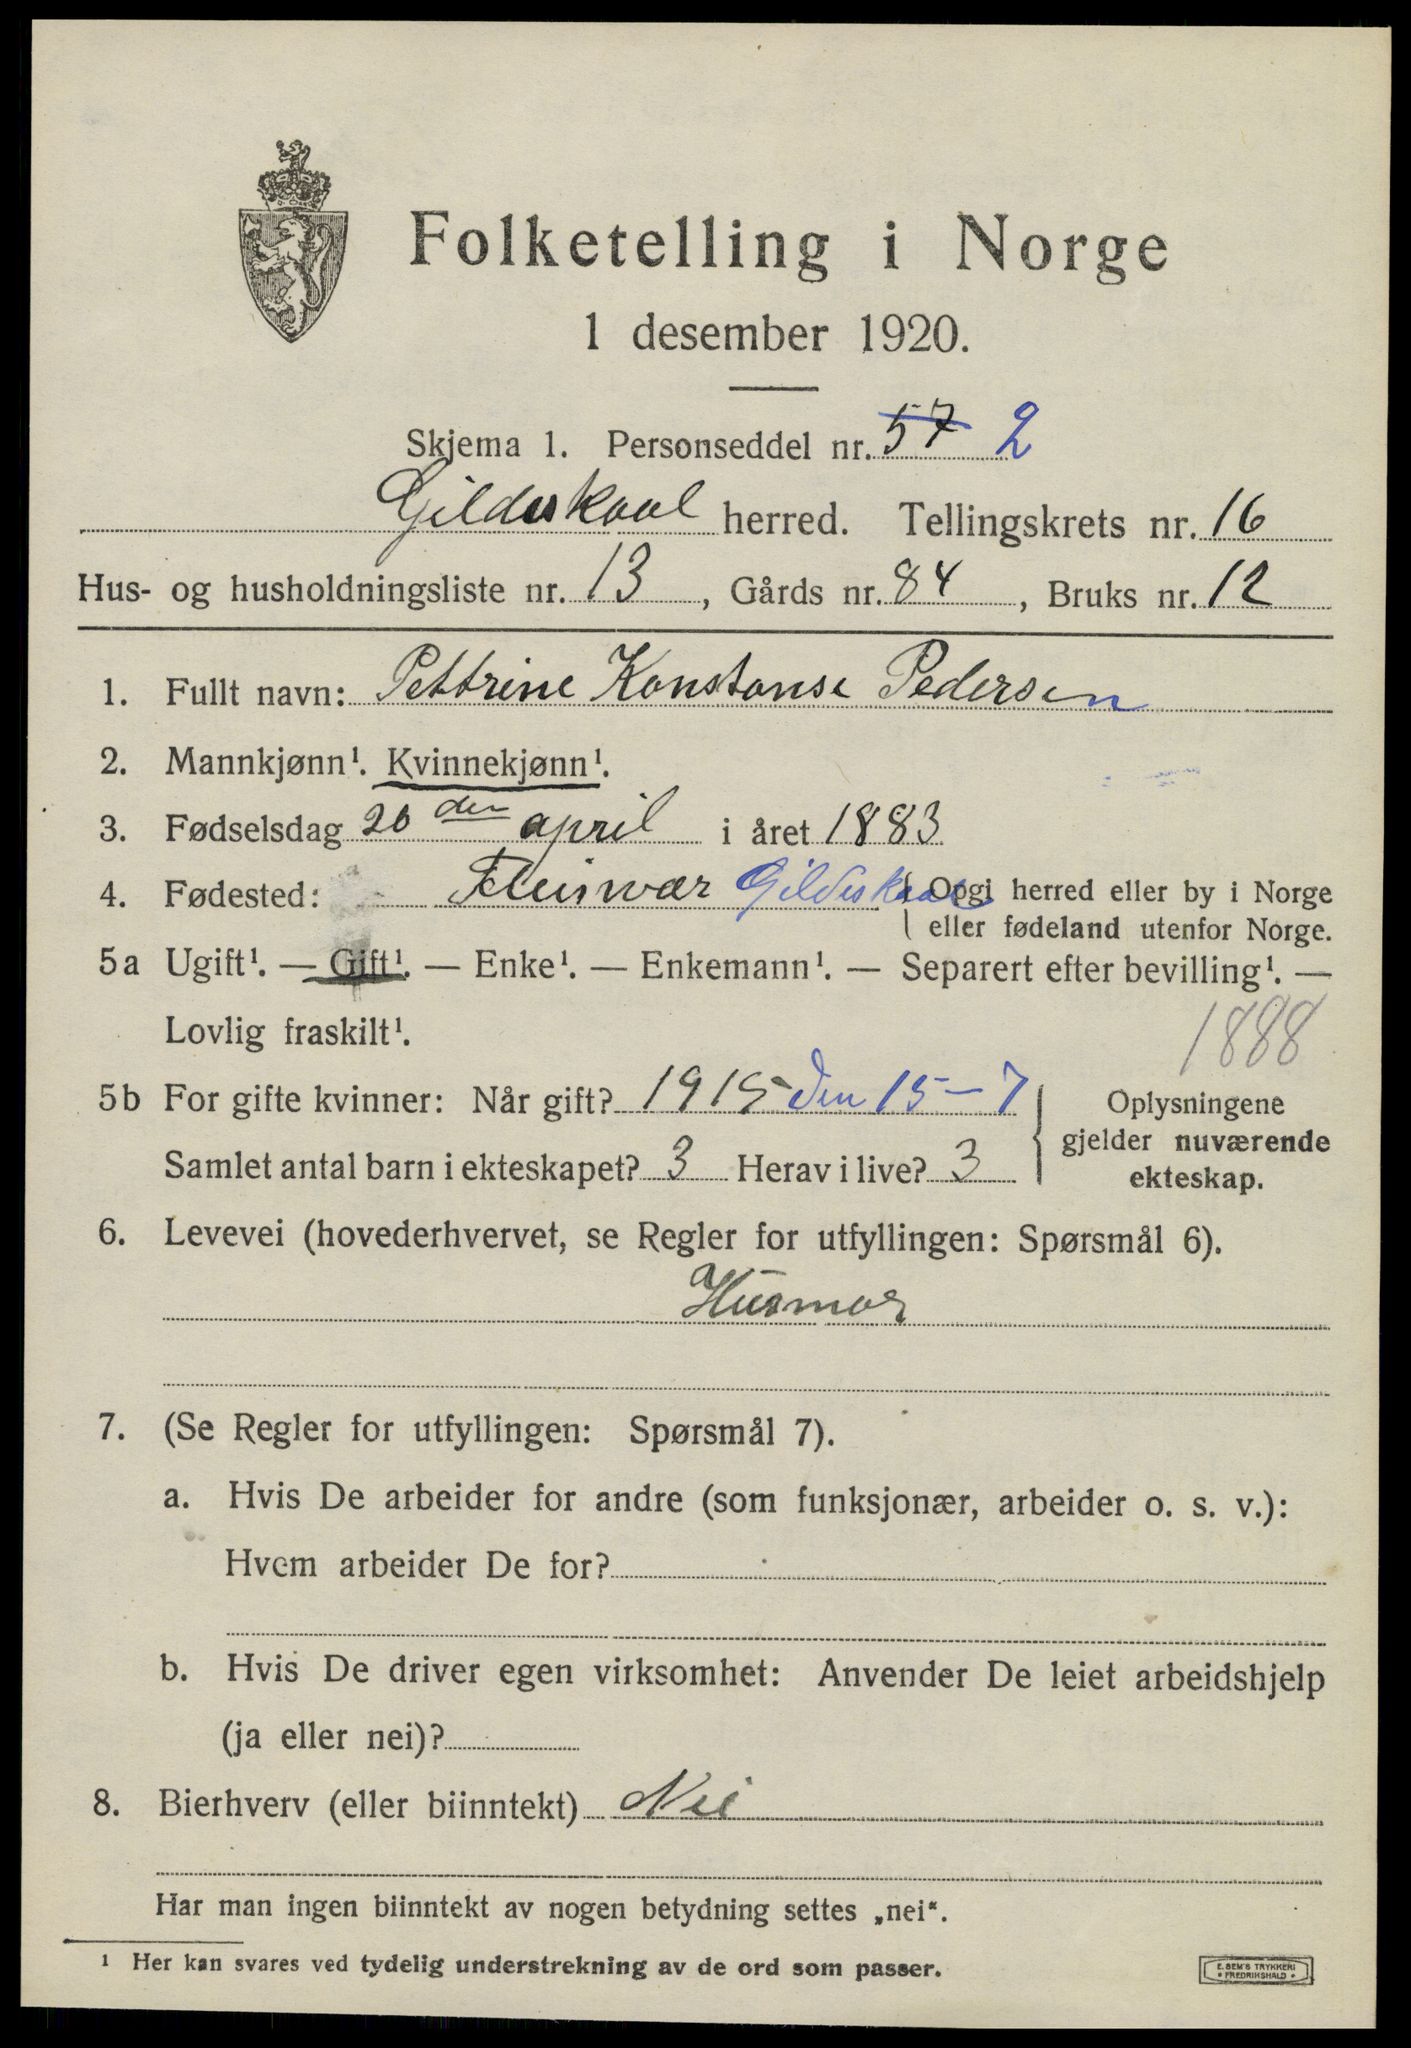 Folketelling i Norge
1 desember 1920.
Skjema 1. Personseddel nr. 57 2
Gildeskaal herred. Tellingskrets nr. 16
Hus- og husholdningsliste nr. 13, Gårds nr. 84, Bruks nr. 12
1. Fullt navn: Pettrine Konstanse Pedersen
2. Mannkjønn¹. Kvinnekjønn¹.
3. Fødselsdag 26 den april i året 1883
4. Fødested: Fleinvær Gildeskaal { Opgi herred eller by i Norge
eller fødeland utenfor Norge.
5a Ugift¹. — Gift¹. — Enke¹. — Enkemann¹. — Separert efter bevilling¹. —
Lovlig fraskilt¹.
1888
5b For gifte kvinner: Når gift? 1915 den 15-7
Samlet antal barn i ekteskapet? 3 Herav i live? 3
Oplysningene
gjelder nuværende
ekteskap.
6. Levevei (hovederhvervet, se Regler for utfyllingen: Spørsmål 6).
Husmor
7. (Se Regler for utfyllingen: Spørsmål 7).
a. Hvis De arbeider for andre (som funksjonær, arbeider o. s. v.):
Hvem arbeider De for?
b. Hvis De driver egen virksomhet: Anvender De leiet arbeidshjelp
(ja eller nei)?
8. Bierhverv (eller biinntekt) Nei
Har man ingen biinntekt av nogen betydning settes „nei“.
¹ Her kan svares ved tydelig understrekning av de ord som passer.
E. SEM'S TRYKKERI
• FREDRIKSHALD •